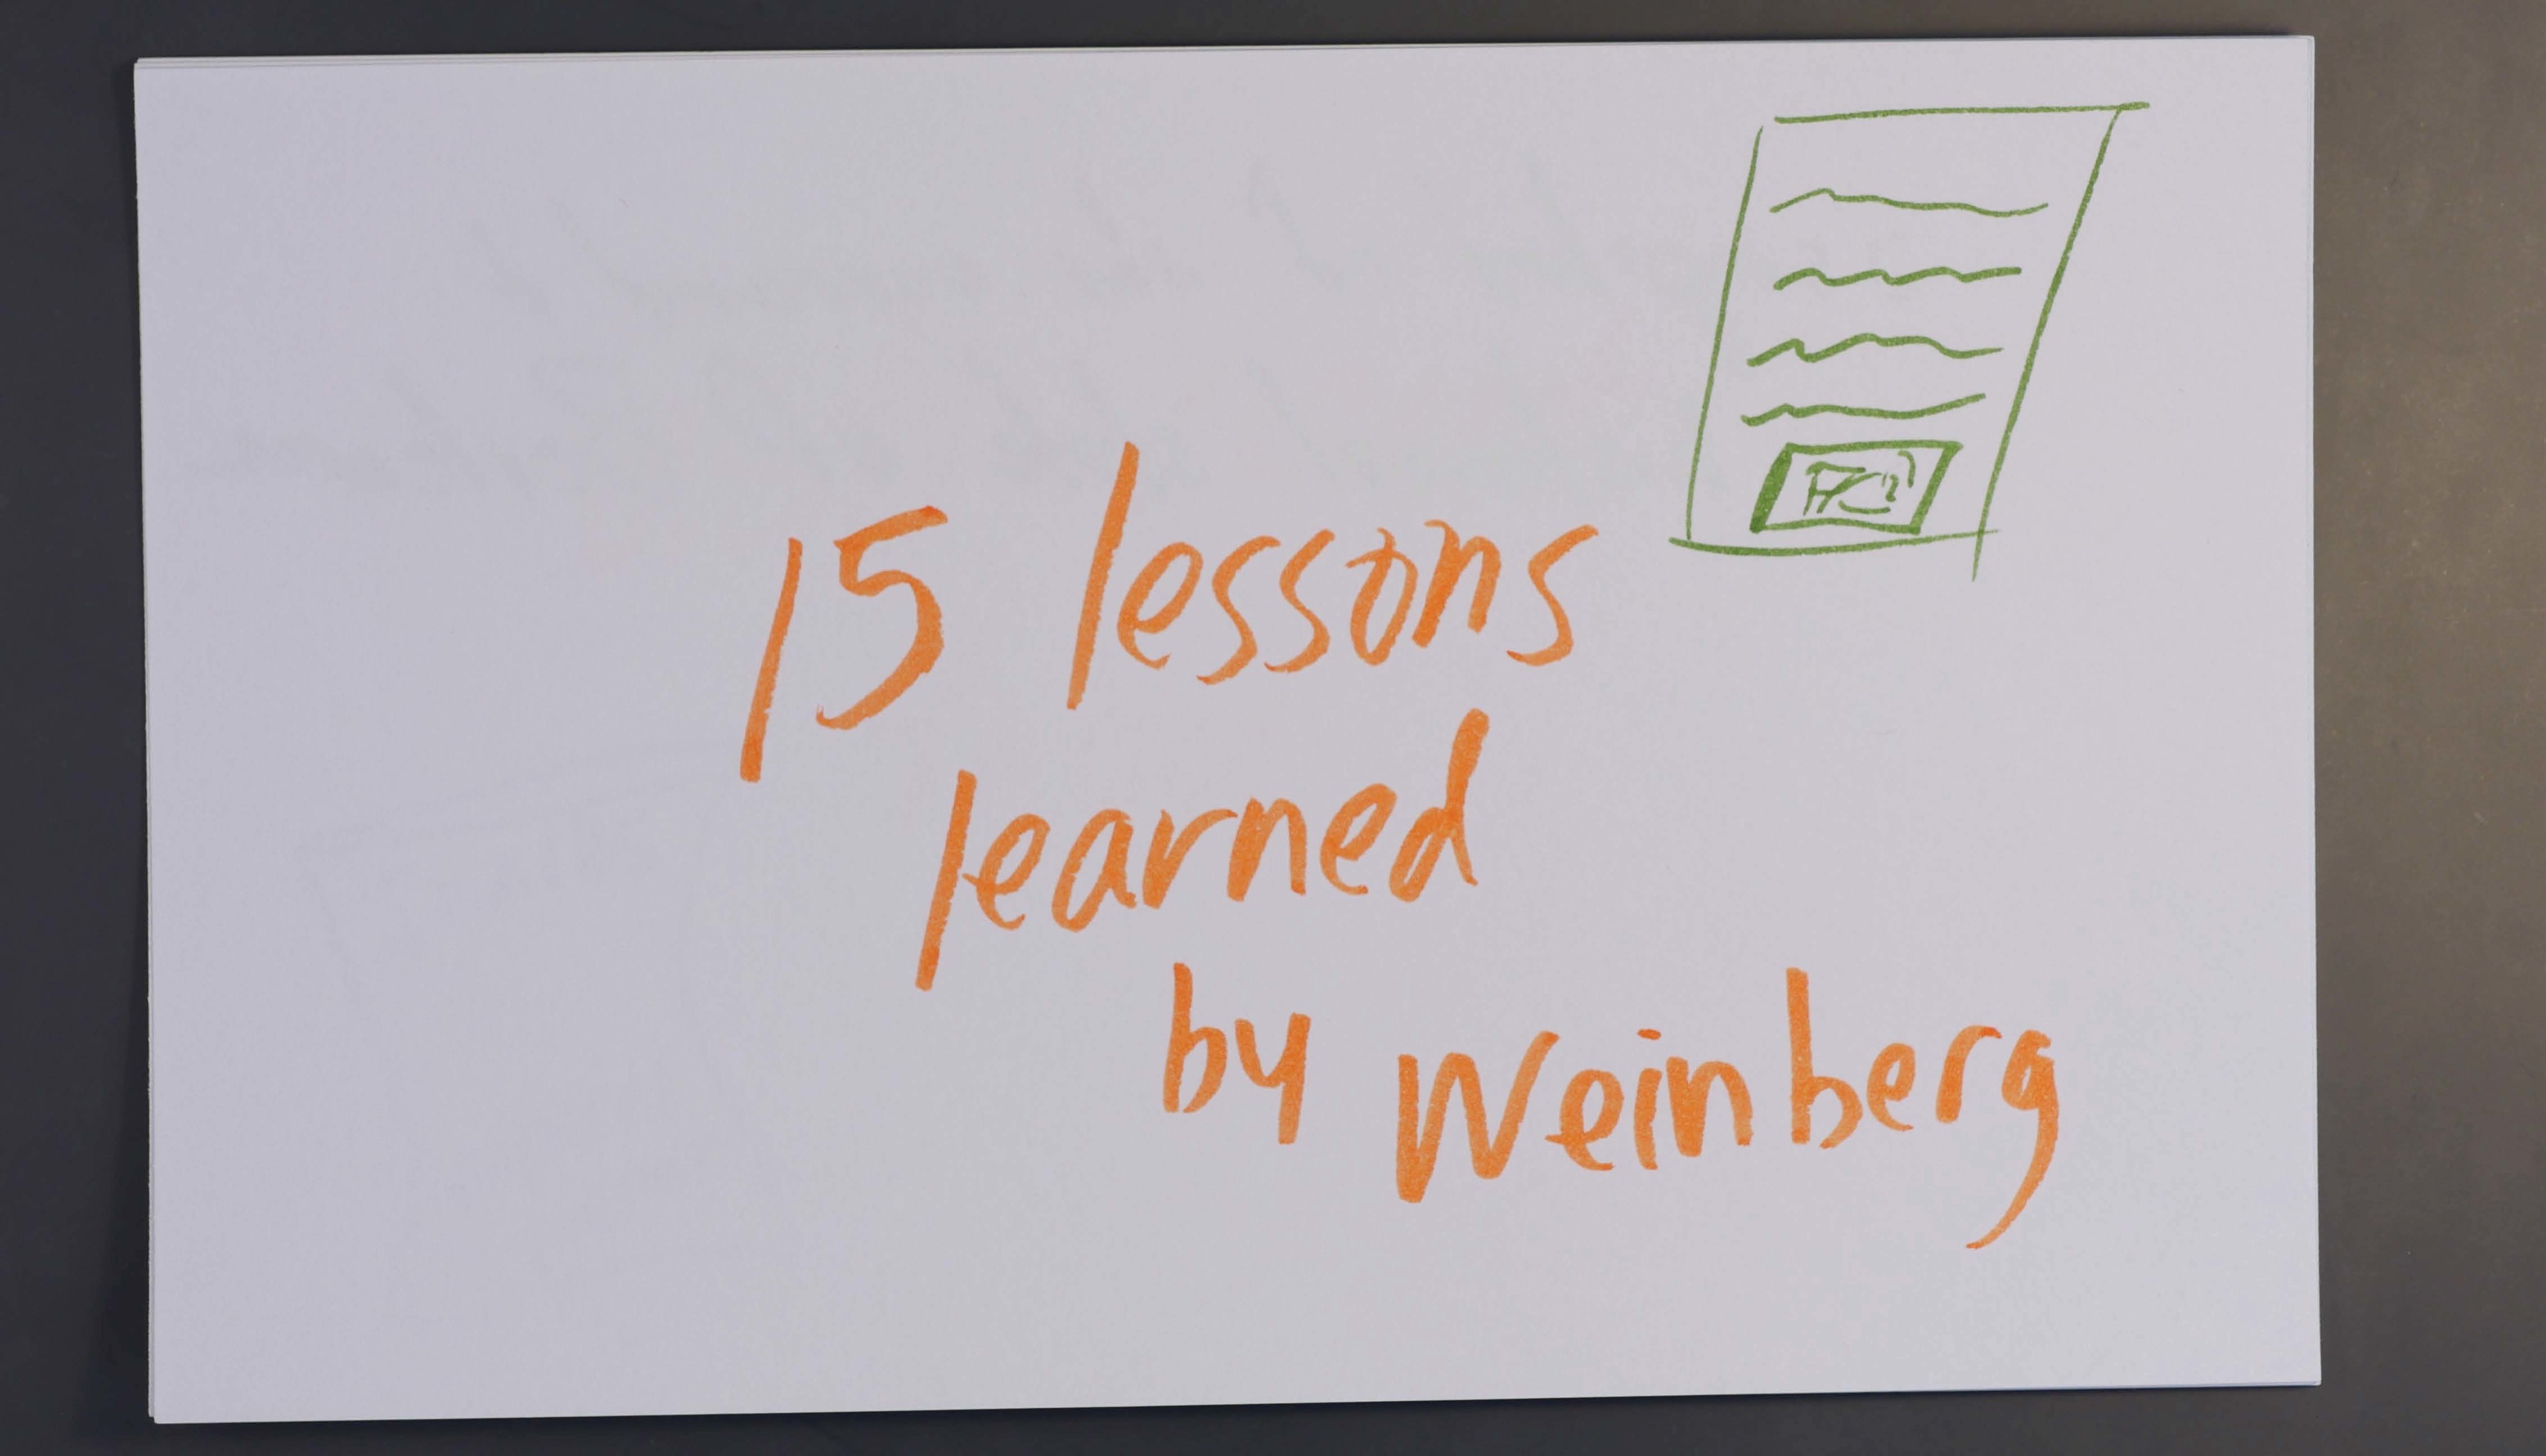 15 lessons
learned
by Weinberg